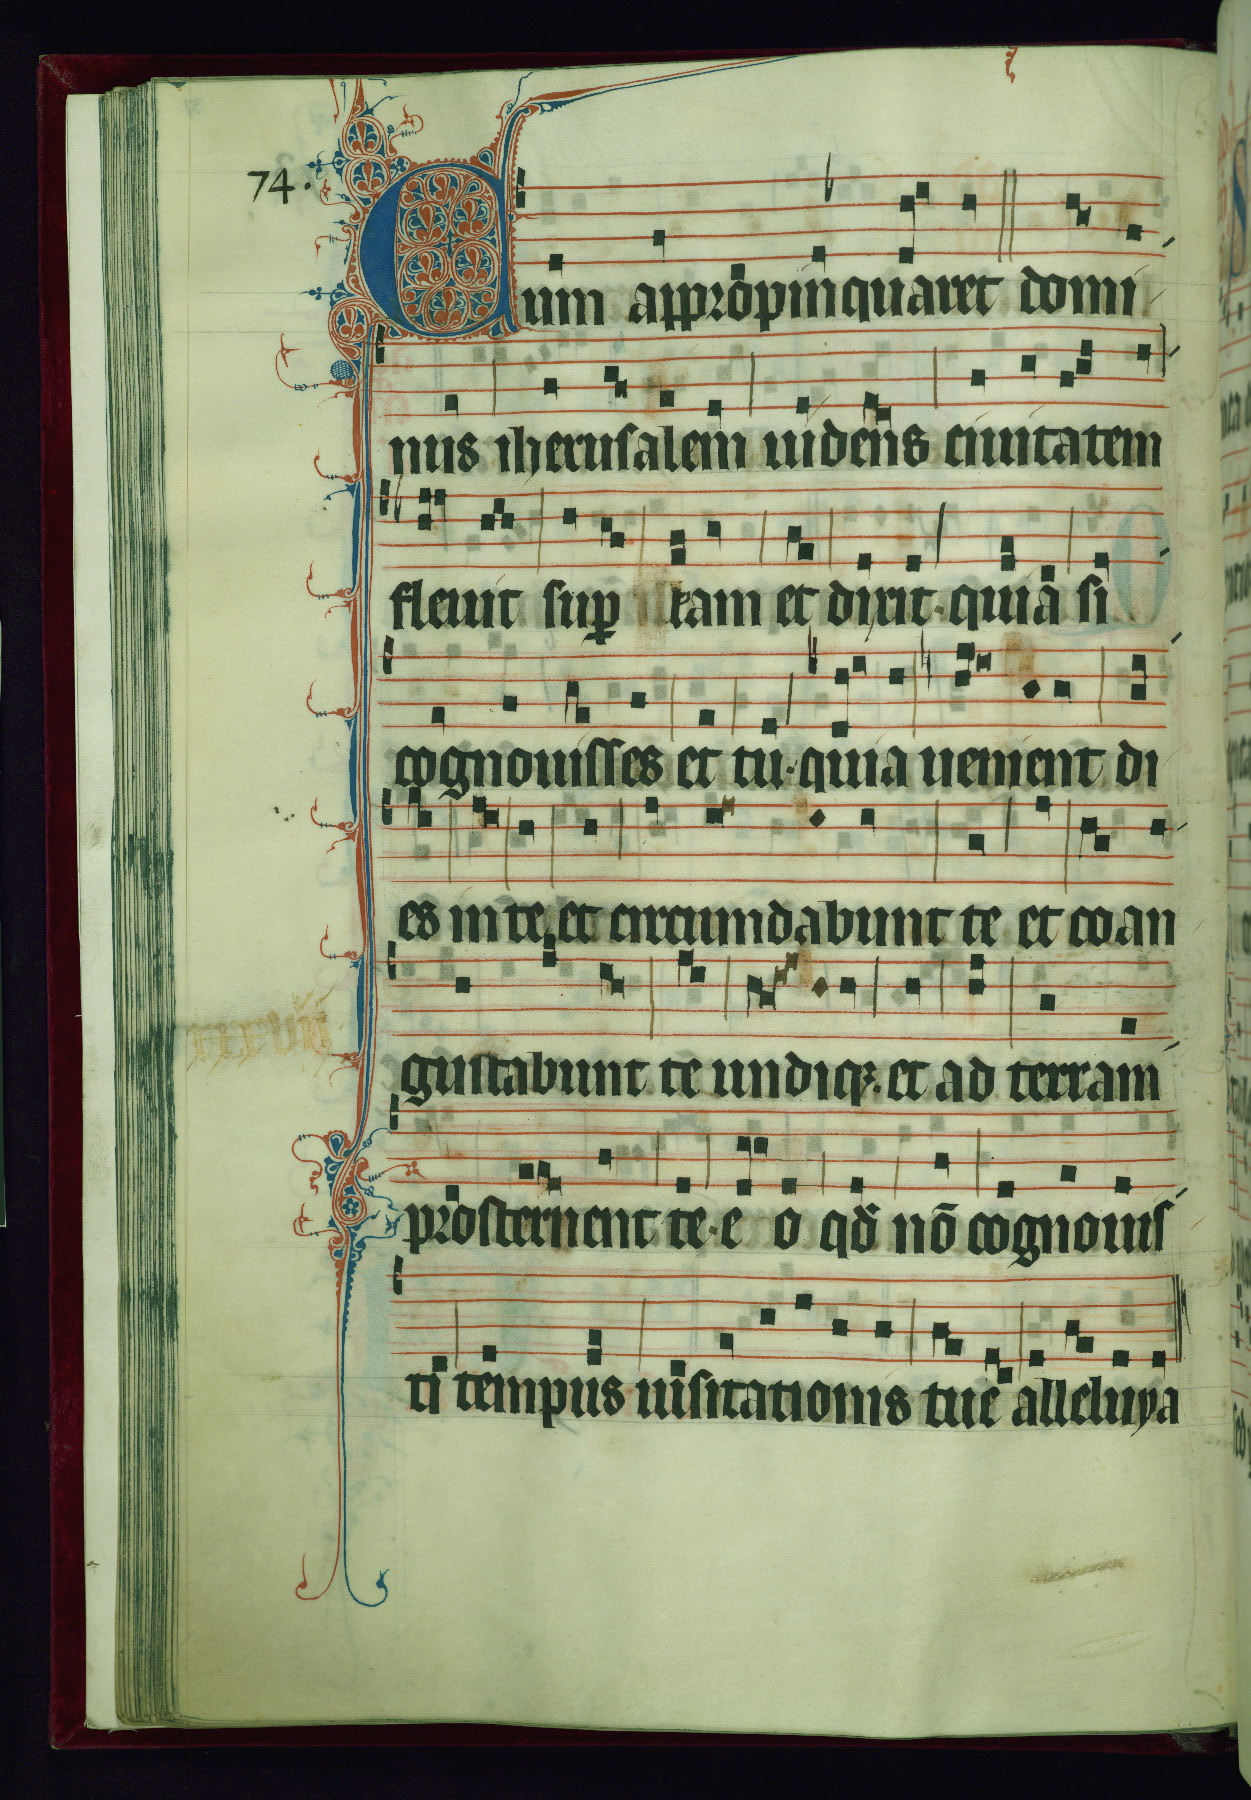 74.
Cum appropinquaret domi
nus iherusalem uidens ciuitatem
fleuit sup eam et dixit · quia si
cognouisses et tu · quia uenient di
es in te et circumdabunt te et coan
gustabunt te undiqꝫ. et ad terram
prosternent te · e o qđ nō cognouis
ti tempus uisitationis tue alleluya